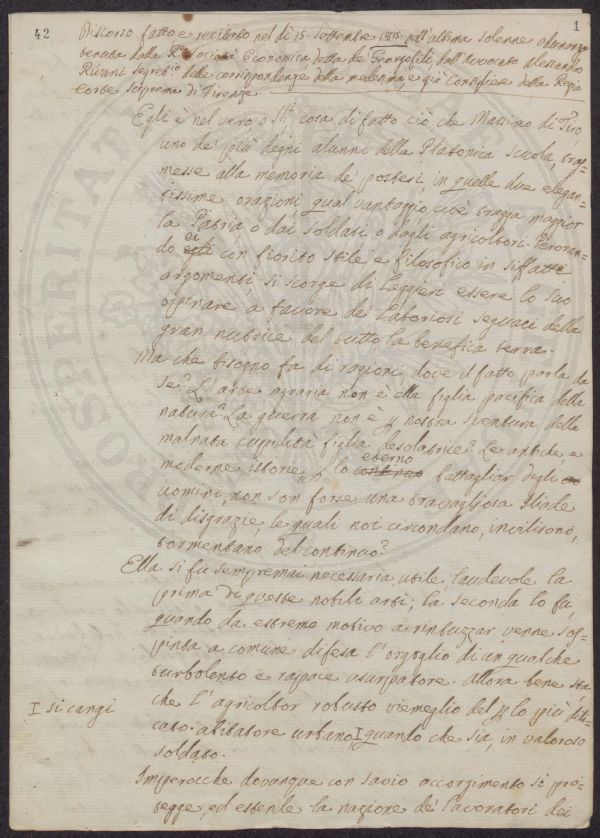 42
1
Discorso fatto e recitato nel dì 15. Settembre 1815. nell'ultima solenne adunanza
tenuta dalla Rle Società Economica detta de' Georgofili, dall'Avvocato Alessandro
Rivani segret.io delle corrispondenze della medesima, e già Consigliere della Regia
Corte Suprema di Firenze.
Egli è nel vero, o SS.ri cosa di fatto ciò che Massimo di Tiro,
uno de' più degni alunni della Platonica scuola, tras=
messe alla memoria de' posteri, in quelle due elegan=
tissime orazioni qual vantaggio, cioè tragga maggior
la Patria o dai soldati o dagli agricoltori. Peroran=
do egli ei con fiorito stile e filosofico in siffatti
argomenti si scorge di leggieri essere lo suo
opinare a favore de' laboriosi seguaci della
gran nutrice del tutto, la benefica terra.
Ma che bisogno fa di ragioni dove il fatto parla da
se? L'arte agraria non è ella figlia pacifica della
natura? La guerra non è p nostra sventura della
malnata cupidità figlia desolatrice? Le antiche e
moderne istorie, p lo continuo eterno battagliar degli
uomini, non son forse una travagliosa Iliade
di disgrazie, le quali noi circondano, inciliscono,
tormentano del continuo?
Ella si fu sempremai necessaria, utile, laudevole la
prima di queste nobili arti; la seconda lo fu,
quando da estremo motivo a rintuzzar venne sos=
pinta a comune difesa l'orgoglio di un qualche
turbolento e rapace usurpatore. Allora bene sta
che l'agricoltor robusto viemeglio del p lo più deli=
cato abitatore urbano I quando che sia, in valoroso
soldato.
I si cangi
Imperocchè dovunque con savio accorgimento si pro=
tegge, ed estende la nazione de' lavoratori dei